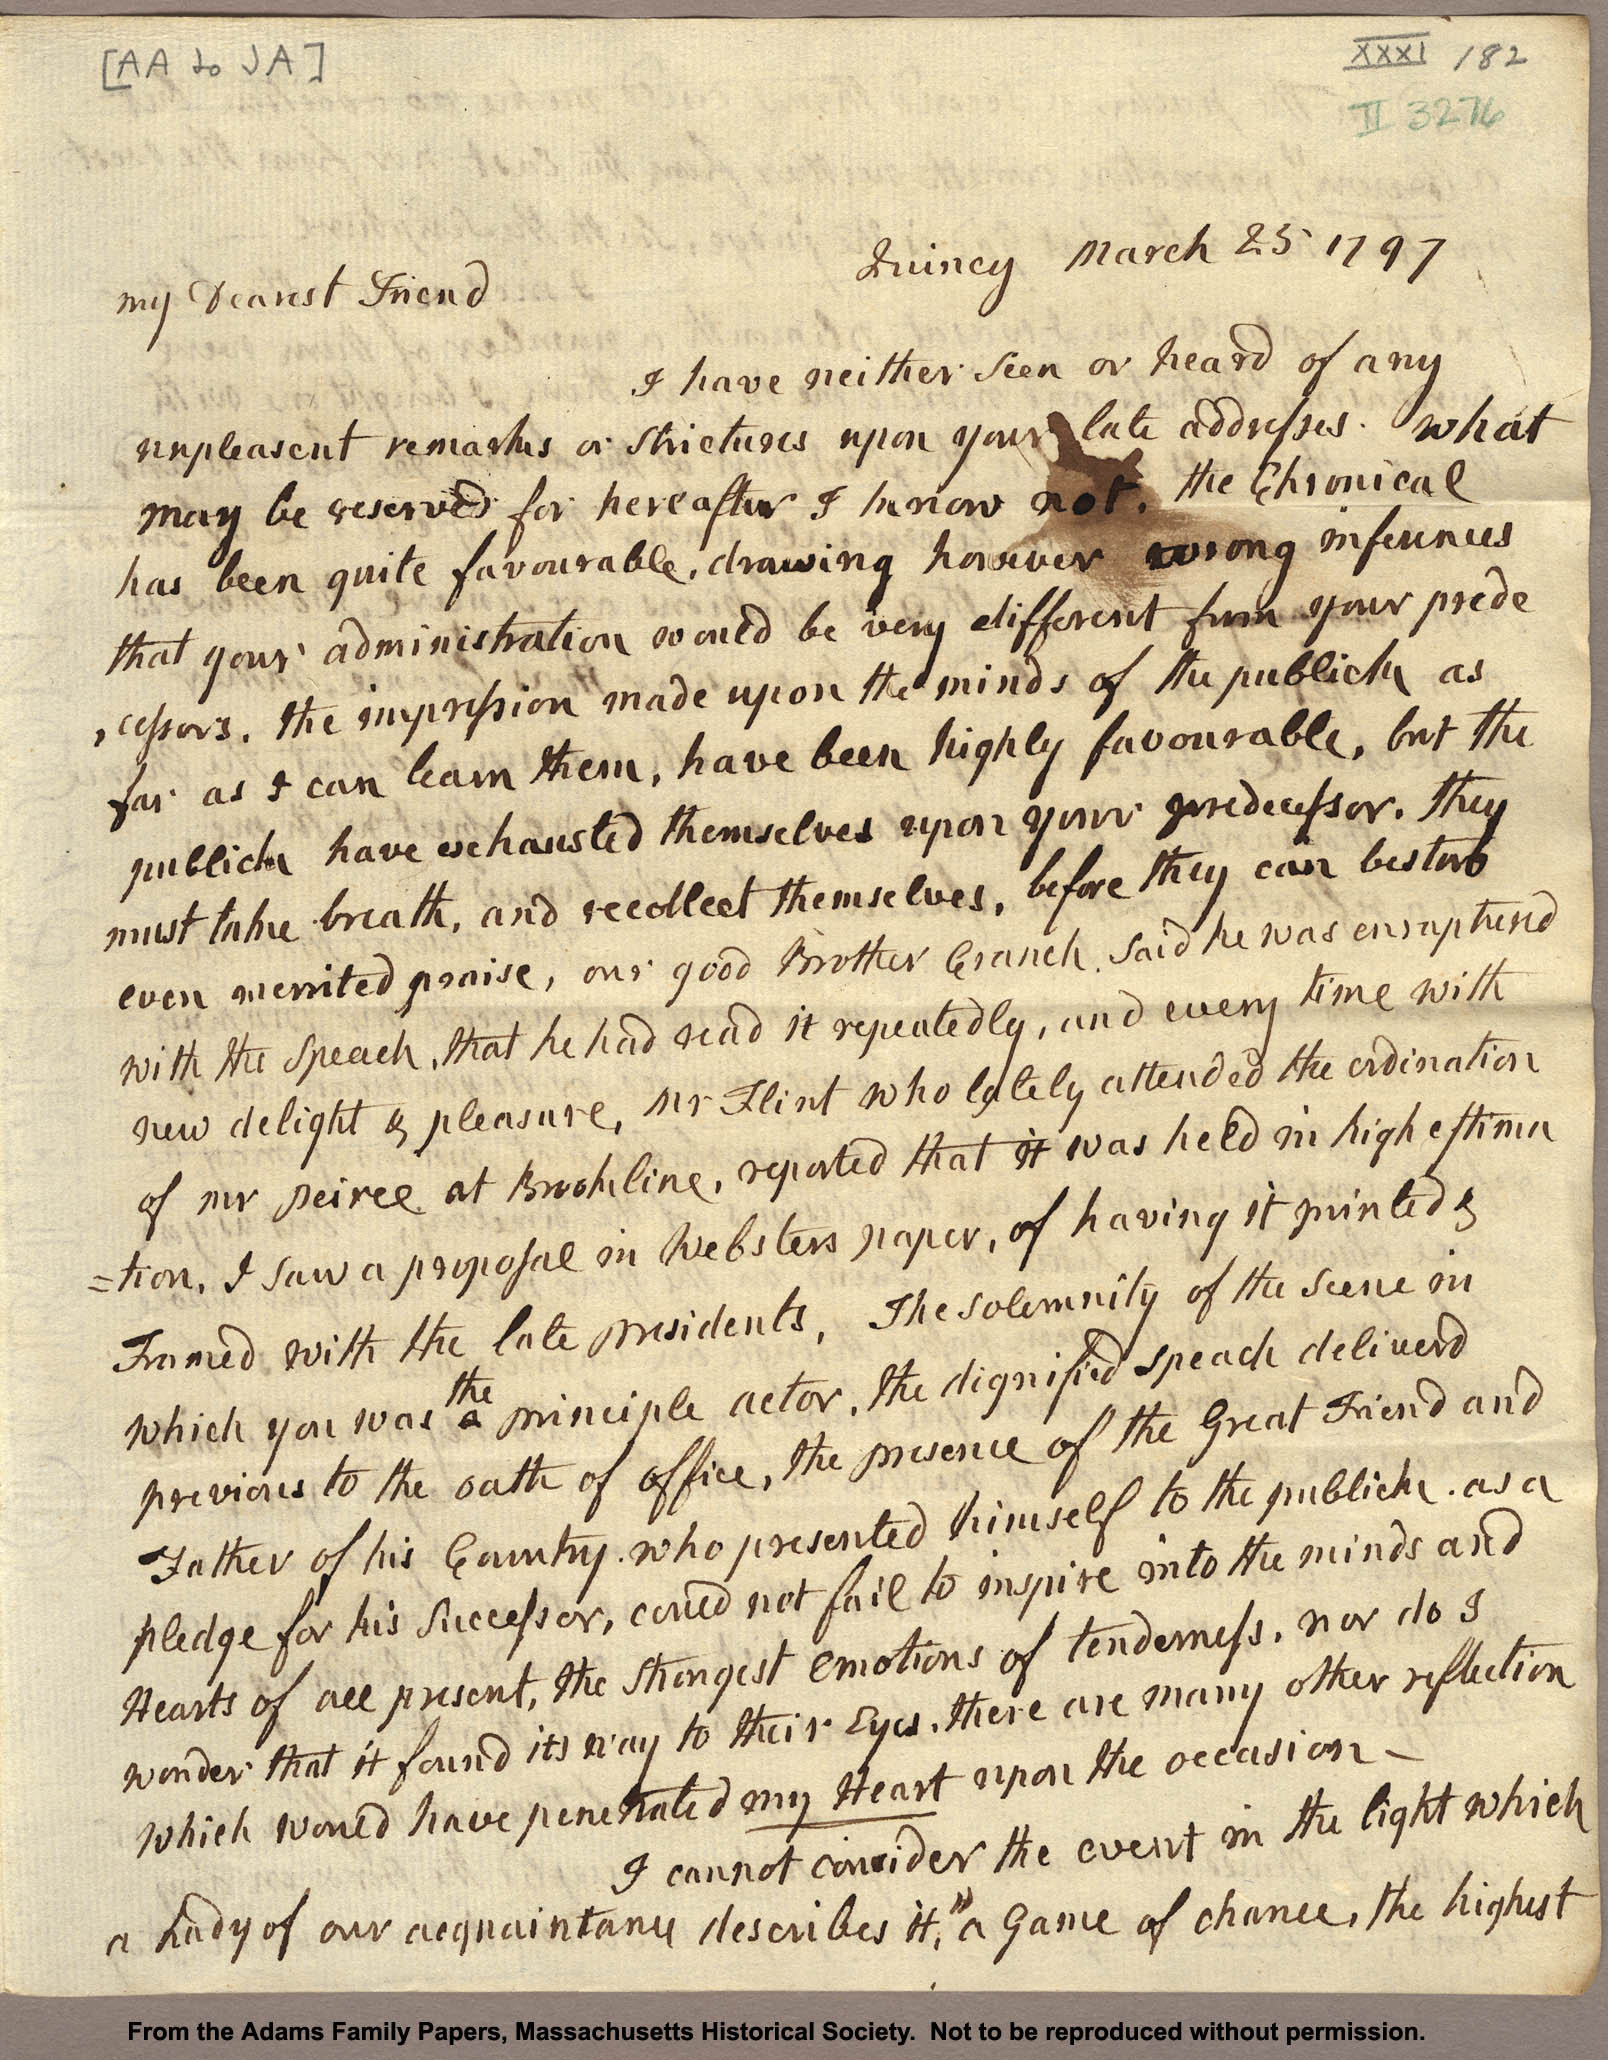 [AA to JA]
XXXI 182
II 3276
Quincy March 25 1797
my Dearest Friend
I have neither seen or heard of any
unpleasent remarks or strictures upon your late addresses. what
may be reserved for hereafter I know not. the Chronical
has been quite favourable, drawing however wrong inferences
that your administration would be very different from your prede
,cessors. the impression made upon the minds of the publick as
far as I can learn them, have been highly favourable, but the
publick have exhausted themselves upon your predecessor. they
must take breath, and recollect themselves, before they can bestow
even merrited praise, our good Brother Cranch said he was enrapturd
with the Speach, that he had read it repeatedly, and every time with
new delight & pleasure, mr Flint who lately attended the ordination
of mr peirce at Brookline, reported that it was held in high estima
=tion, I saw a proposal in Websters paper, of having it printed &
Framed with the late presidents, The solemnity of the scene in
which you was a the principle actor, the dignified speach deliverd
previous to the oath of office, the presence of the Great Friend and
Father of his Country. who presented himself to the publick. as a
pledge for his successor, could not fail to inspire into the minds and
Hearts of all present, the strongest emotions of tenderness. nor do I
wonder that it found its way to their Eyes. there are many other reflection
which would have penetrated my Heart upon the occasion—
I cannot consider the event in the light which
a Lady of our acquaintance describes it, "a Game of chance, the highest
From the Adams Family Papers, Massachusetts Historical Society. Not to be reproduced without permission.